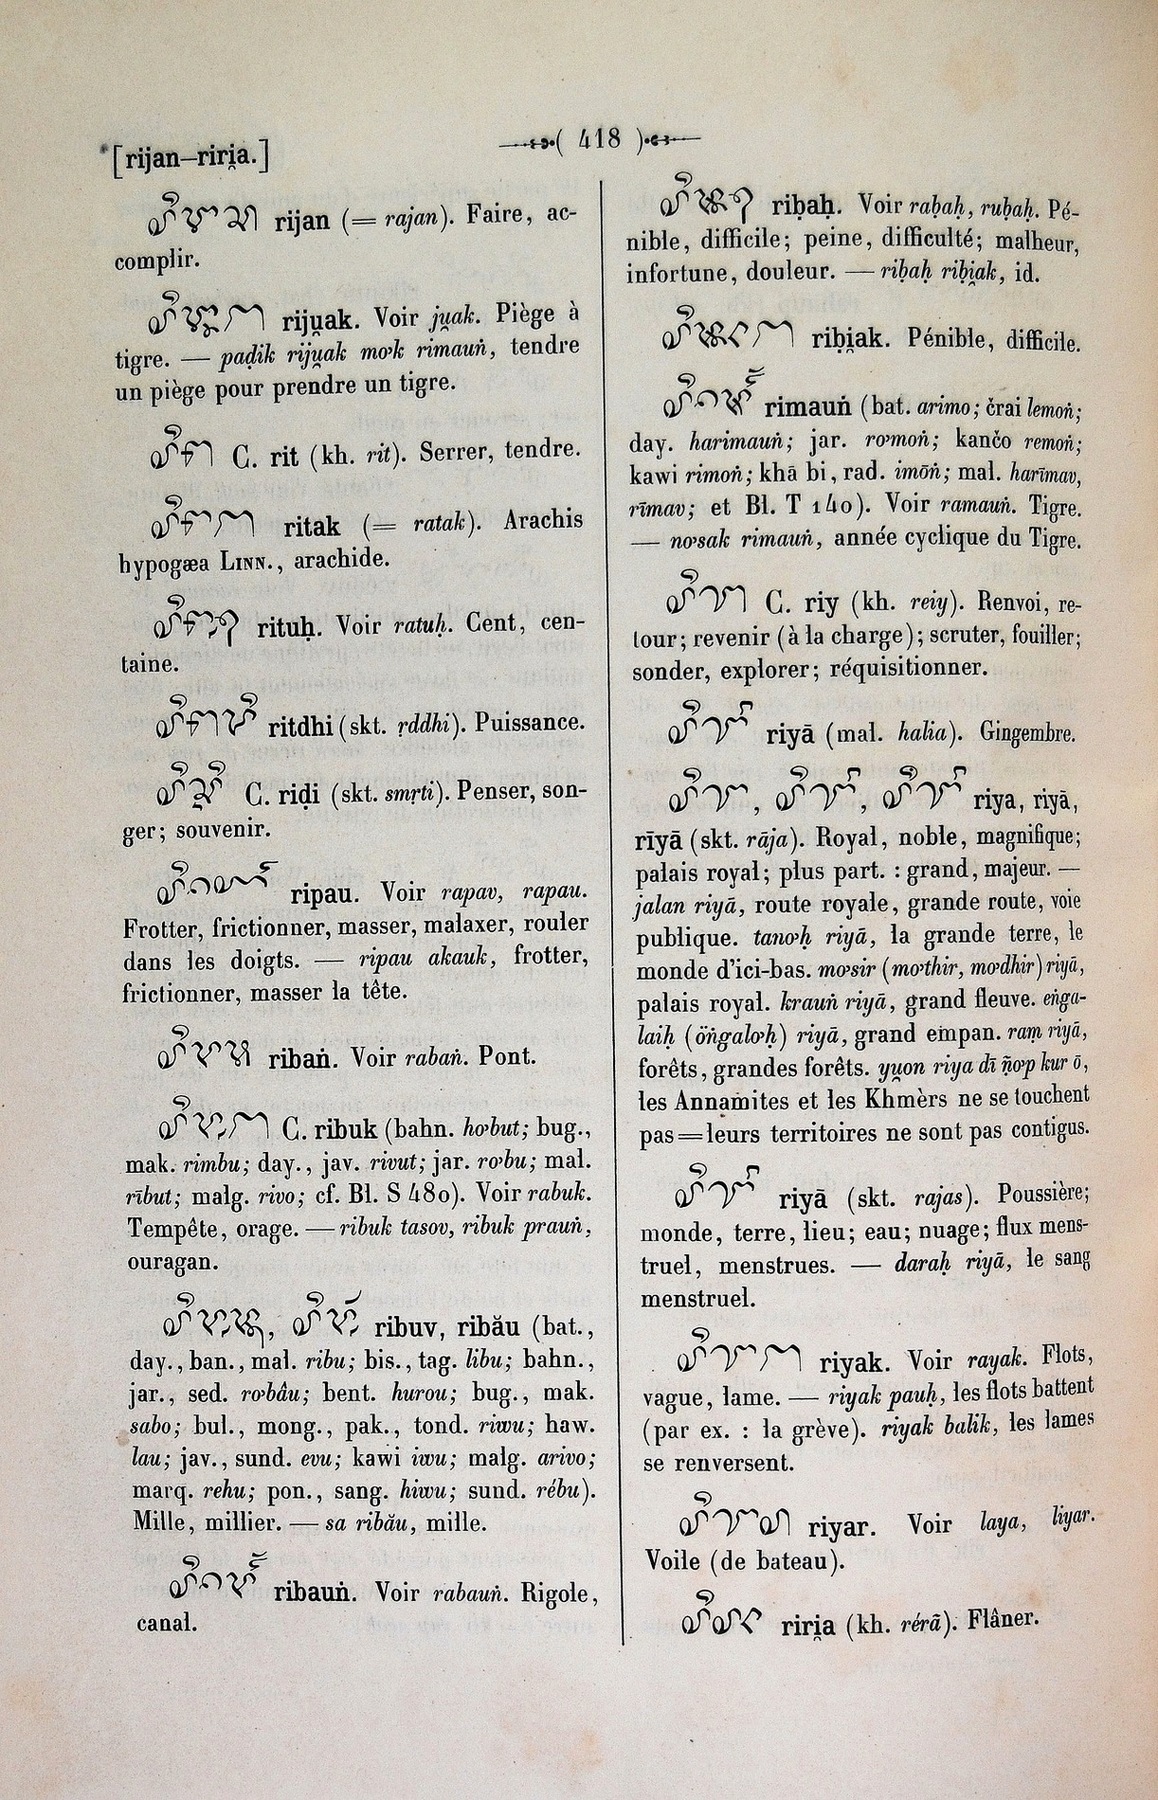 [rijan–riri̭a.]
( 418 )
rijan (= rajan). Faire, ac-
complir.
riju̯ak. Voir ju̯ak. Piège à
tigre. — paḍik riju̯ak mơk rimauṅ, tendre
un piège pour prendre un tigre.
C. rit (kh. rit). Serrer, tendre.
ritak (= ratak). Arachis
hypogæa Linn., arachide.
rituḥ. Voir ratuḥ. Cent, cen-
taine.
ritdhi (skt. ṛddhi). Puissance.
C. riḍi (skt. smṛti). Penser, son-
ger; souvenir.
ripau. Voir rapav, rapau.
Frotter, frictionner, masser, malaxer, rouler
dans les doigts. — ripau akauk, frotter,
frictionner, masser la tête.
ribaṅ. Voir rabaṅ. Pont.
C. ribuk (bahn. hơbut; bug.,
mak. rimbu; day., jav. rivut; jar. rơbu; mal.
rībut; malg. rivo; cf. Bl. S 480). Voir rabuk.
Tempête, orage. — ribuk tasov, ribuk prauṅ,
ouragan.
ribuv, ribău (bat.,
day., ban., mal. ribu; bis., tag. libu; bahn.,
jar., sed. rơbâu; bent. hurou; bug., mak.
sabo; bul., mong., pak., tond. riwu; haw.
lau; jav., sund. evu; kawi iwu; malg. arivo;
marq. rehu; pon., sang. hiwu; sund. rébu).
Mille, millier. — sa ribău, mille.
ribauṅ. Voir rabauṅ. Rigole,
canal.
riḅaḥ. Voir raḅaḥ, ruḅaḥ. Pé-
nible, difficile; peine, difficulté; malheur,
infortune, douleur. — riḅaḥ riḅi̭ak, id.
riḅi̭ak. Pénible, difficile.
rimauṅ (bat. arimo; črai lemoṅ;
day. harimauṅ; jar. rơmoṅ; kančo remoṅ;
kawi rimoṅ; khā bi, rad. imōṅ; mal. harīmav,
rīmav; et Bl. T 140). Voir ramauṅ. Tigre.
— nơsak rimauṅ, année cyclique du Tigre.
C. riy (kh. reiy). Renvoi, re-
tour; revenir (à la charge); scruter, fouiller;
sonder, explorer; réquisitionner.
riyā (mal. halia). Gingembre.
riya, riyā,
rīyā (skt. rāja). Royal, noble, magnifique;
palais royal; plus part. : grand, majeur. —
jalan riyā, route royale, grande route, voie
publique. tanơḥ riyā, la grande terre, le
monde d'ici-bas. mơsir (mơthir, mơdhir) riyā,
palais royal. krauṅ riyā, grand fleuve. eṅga-
laiḥ (öṅgalơḥ) riyā, grand empan. raṃ riyā,
forêts, grandes forêts. yu̯on riya dī ñơp kur ō,
les Annamites et les Khmèrs ne se touchent
pas = leurs territoires ne sont pas contigus.
riyā (skt. rajas). Poussière;
monde, terre, lieu; eau; nuage; flux mens-
truel, menstrues. — daraḥ riyā, le sang
menstruel.
riyak. Voir rayak. Flots,
vague, lame. — riyak pauḥ, les flots battent
(par ex. : la grève). riyak balik, les lames
se renversent.
riyar. Voir laya, liyar.
Voile (de bateau).
riri̭a (kh. rérā). Flâner.